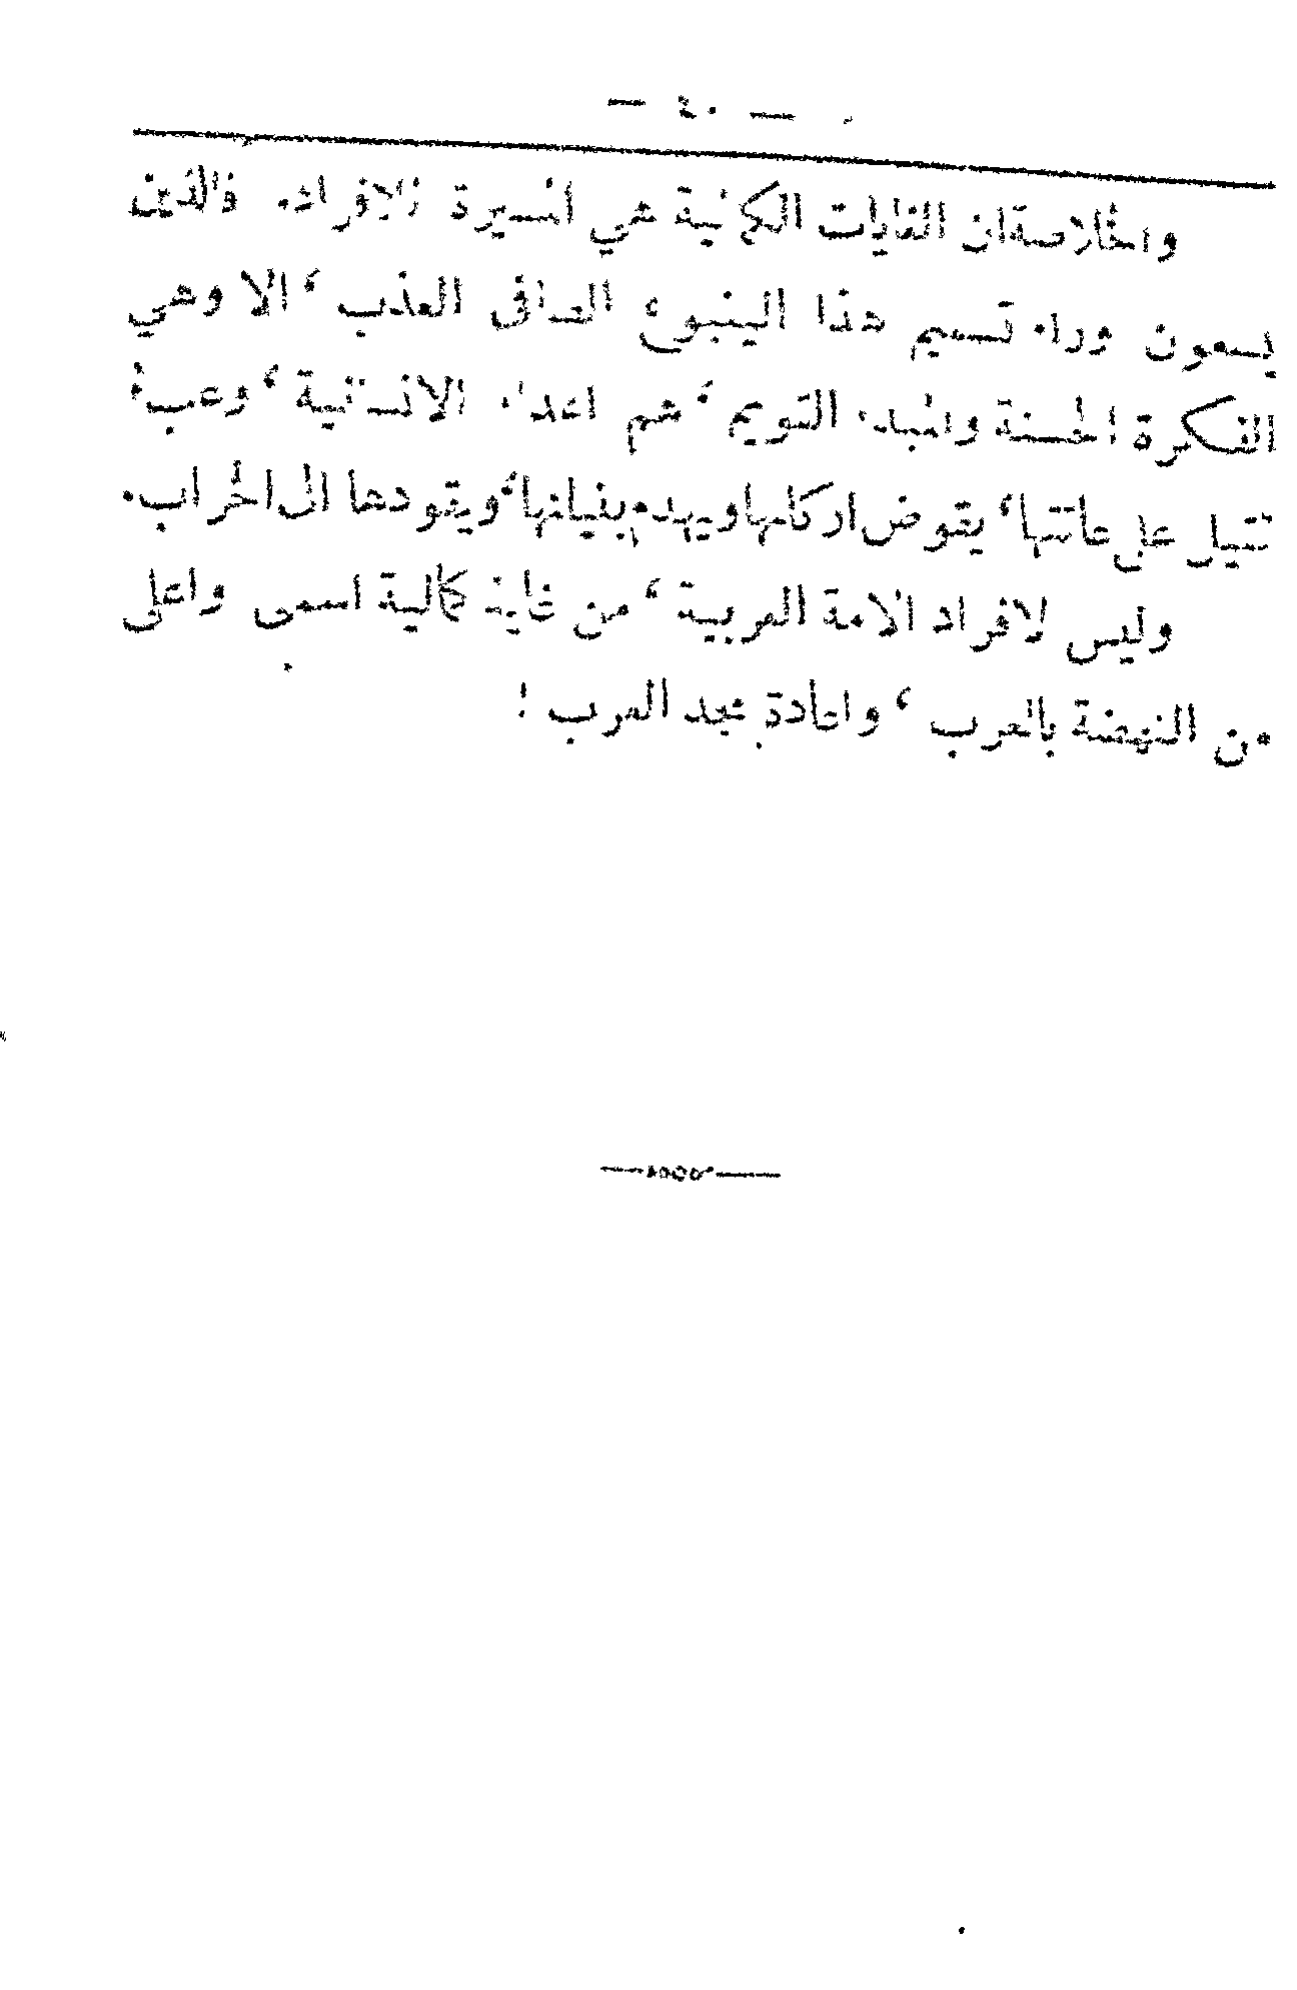 — ٤٠ —
والخلاصة ان الغايات الكمالية هي المسيرة للافراد. فالذين
يسعون وراء تسميم هذا الينبوع الصافى العذب ، الا وهي
الفكرة الحسنة والمبدء القويم ، هم اعداء الانسانية ، وعبء
ثقيل على عاتقها، يقوض اركانها ويهدم بنيانها، ويقودها الى الخراب.
وليس لافراد الامة العربية ، من غاية كمالية اسمى واعلى
من النهضة بالعرب ، واعادة مجد العرب !